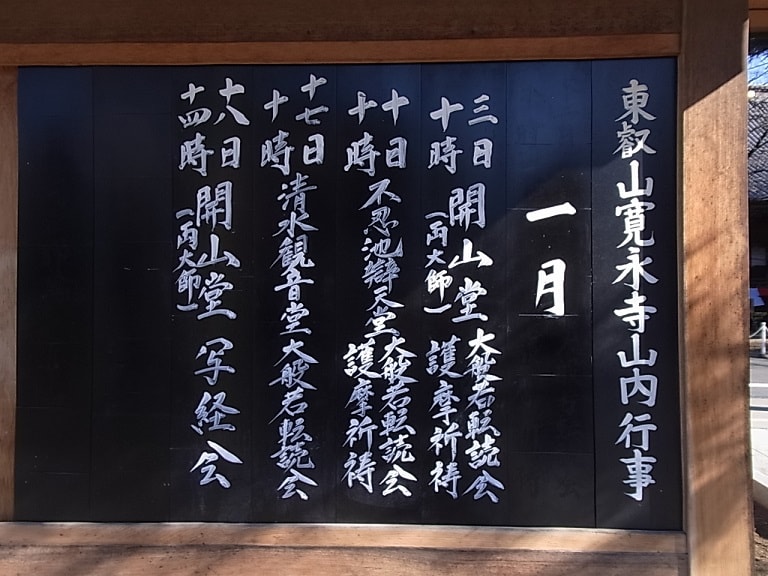 東叡山寛永寺山内行事
一月
三日 開山堂 大般若転読会
十時 (両大師) 護摩祈祷
十日 不忍池辯天堂 大般若転読会
十時 護摩祈祷
十七日 清水観音堂 大般若転読会
十時
十八日 開山堂 写経会
十四時 (両大師)